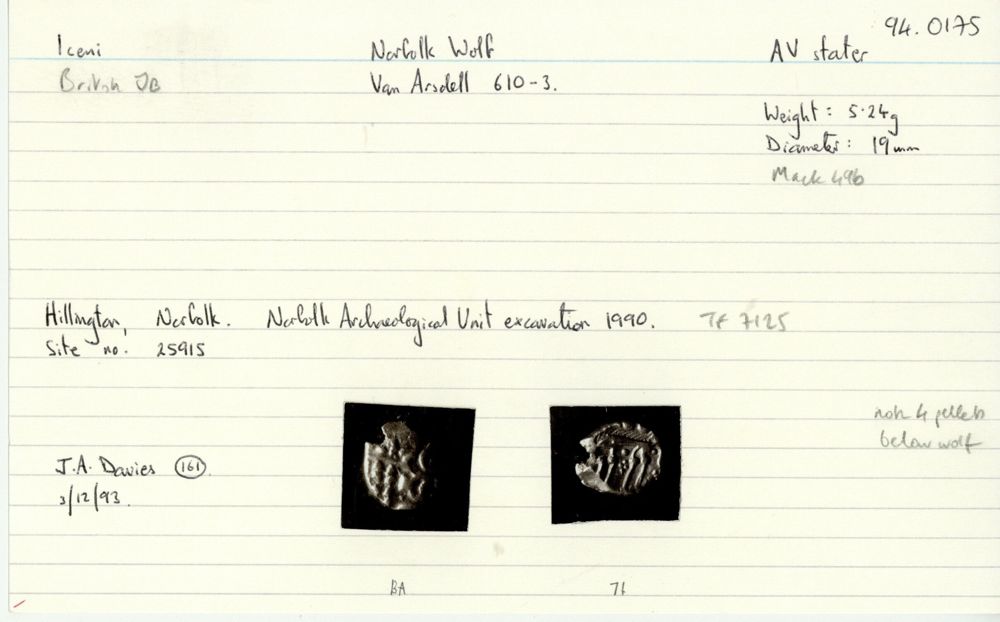 94.0175
Iceni Norfolk Wolf AV stater
British JB Van Arsdell 610-3.
Weight: 5.24g
Diameter: 19mm
Mack 49b
Hillington, Norfolk. Norfolk Archaeological Unit excavation 1990. TF 7125
Site no. 25915
note 4 pellets
below wolf
J.A. Davies (161).
3/12/93.
BA 71